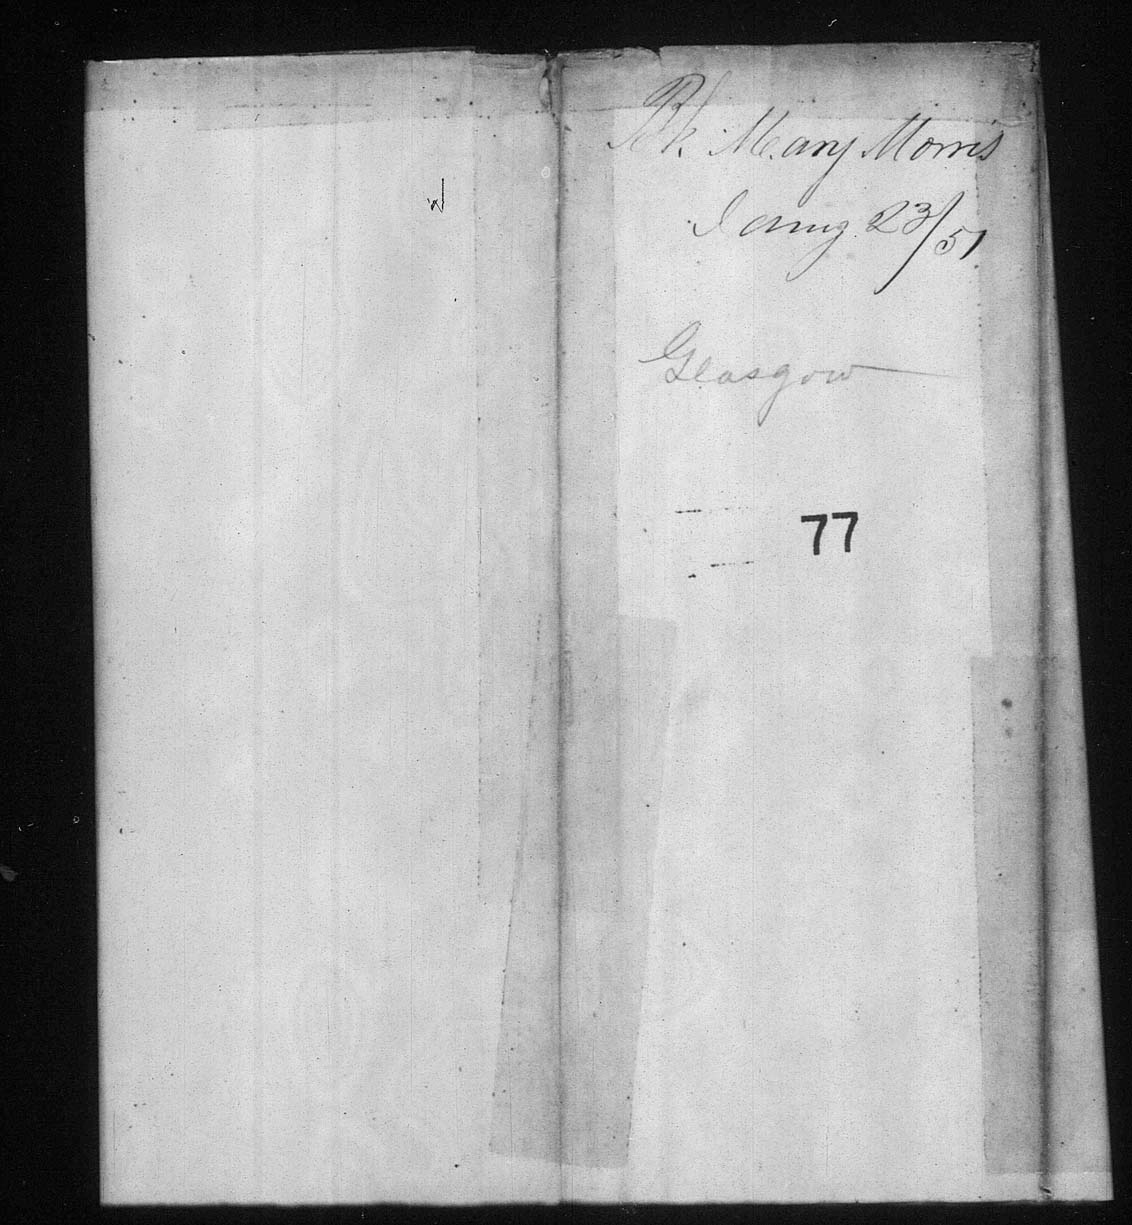 Bk. Mary Morris
Jany 23/51
Glasgow
77